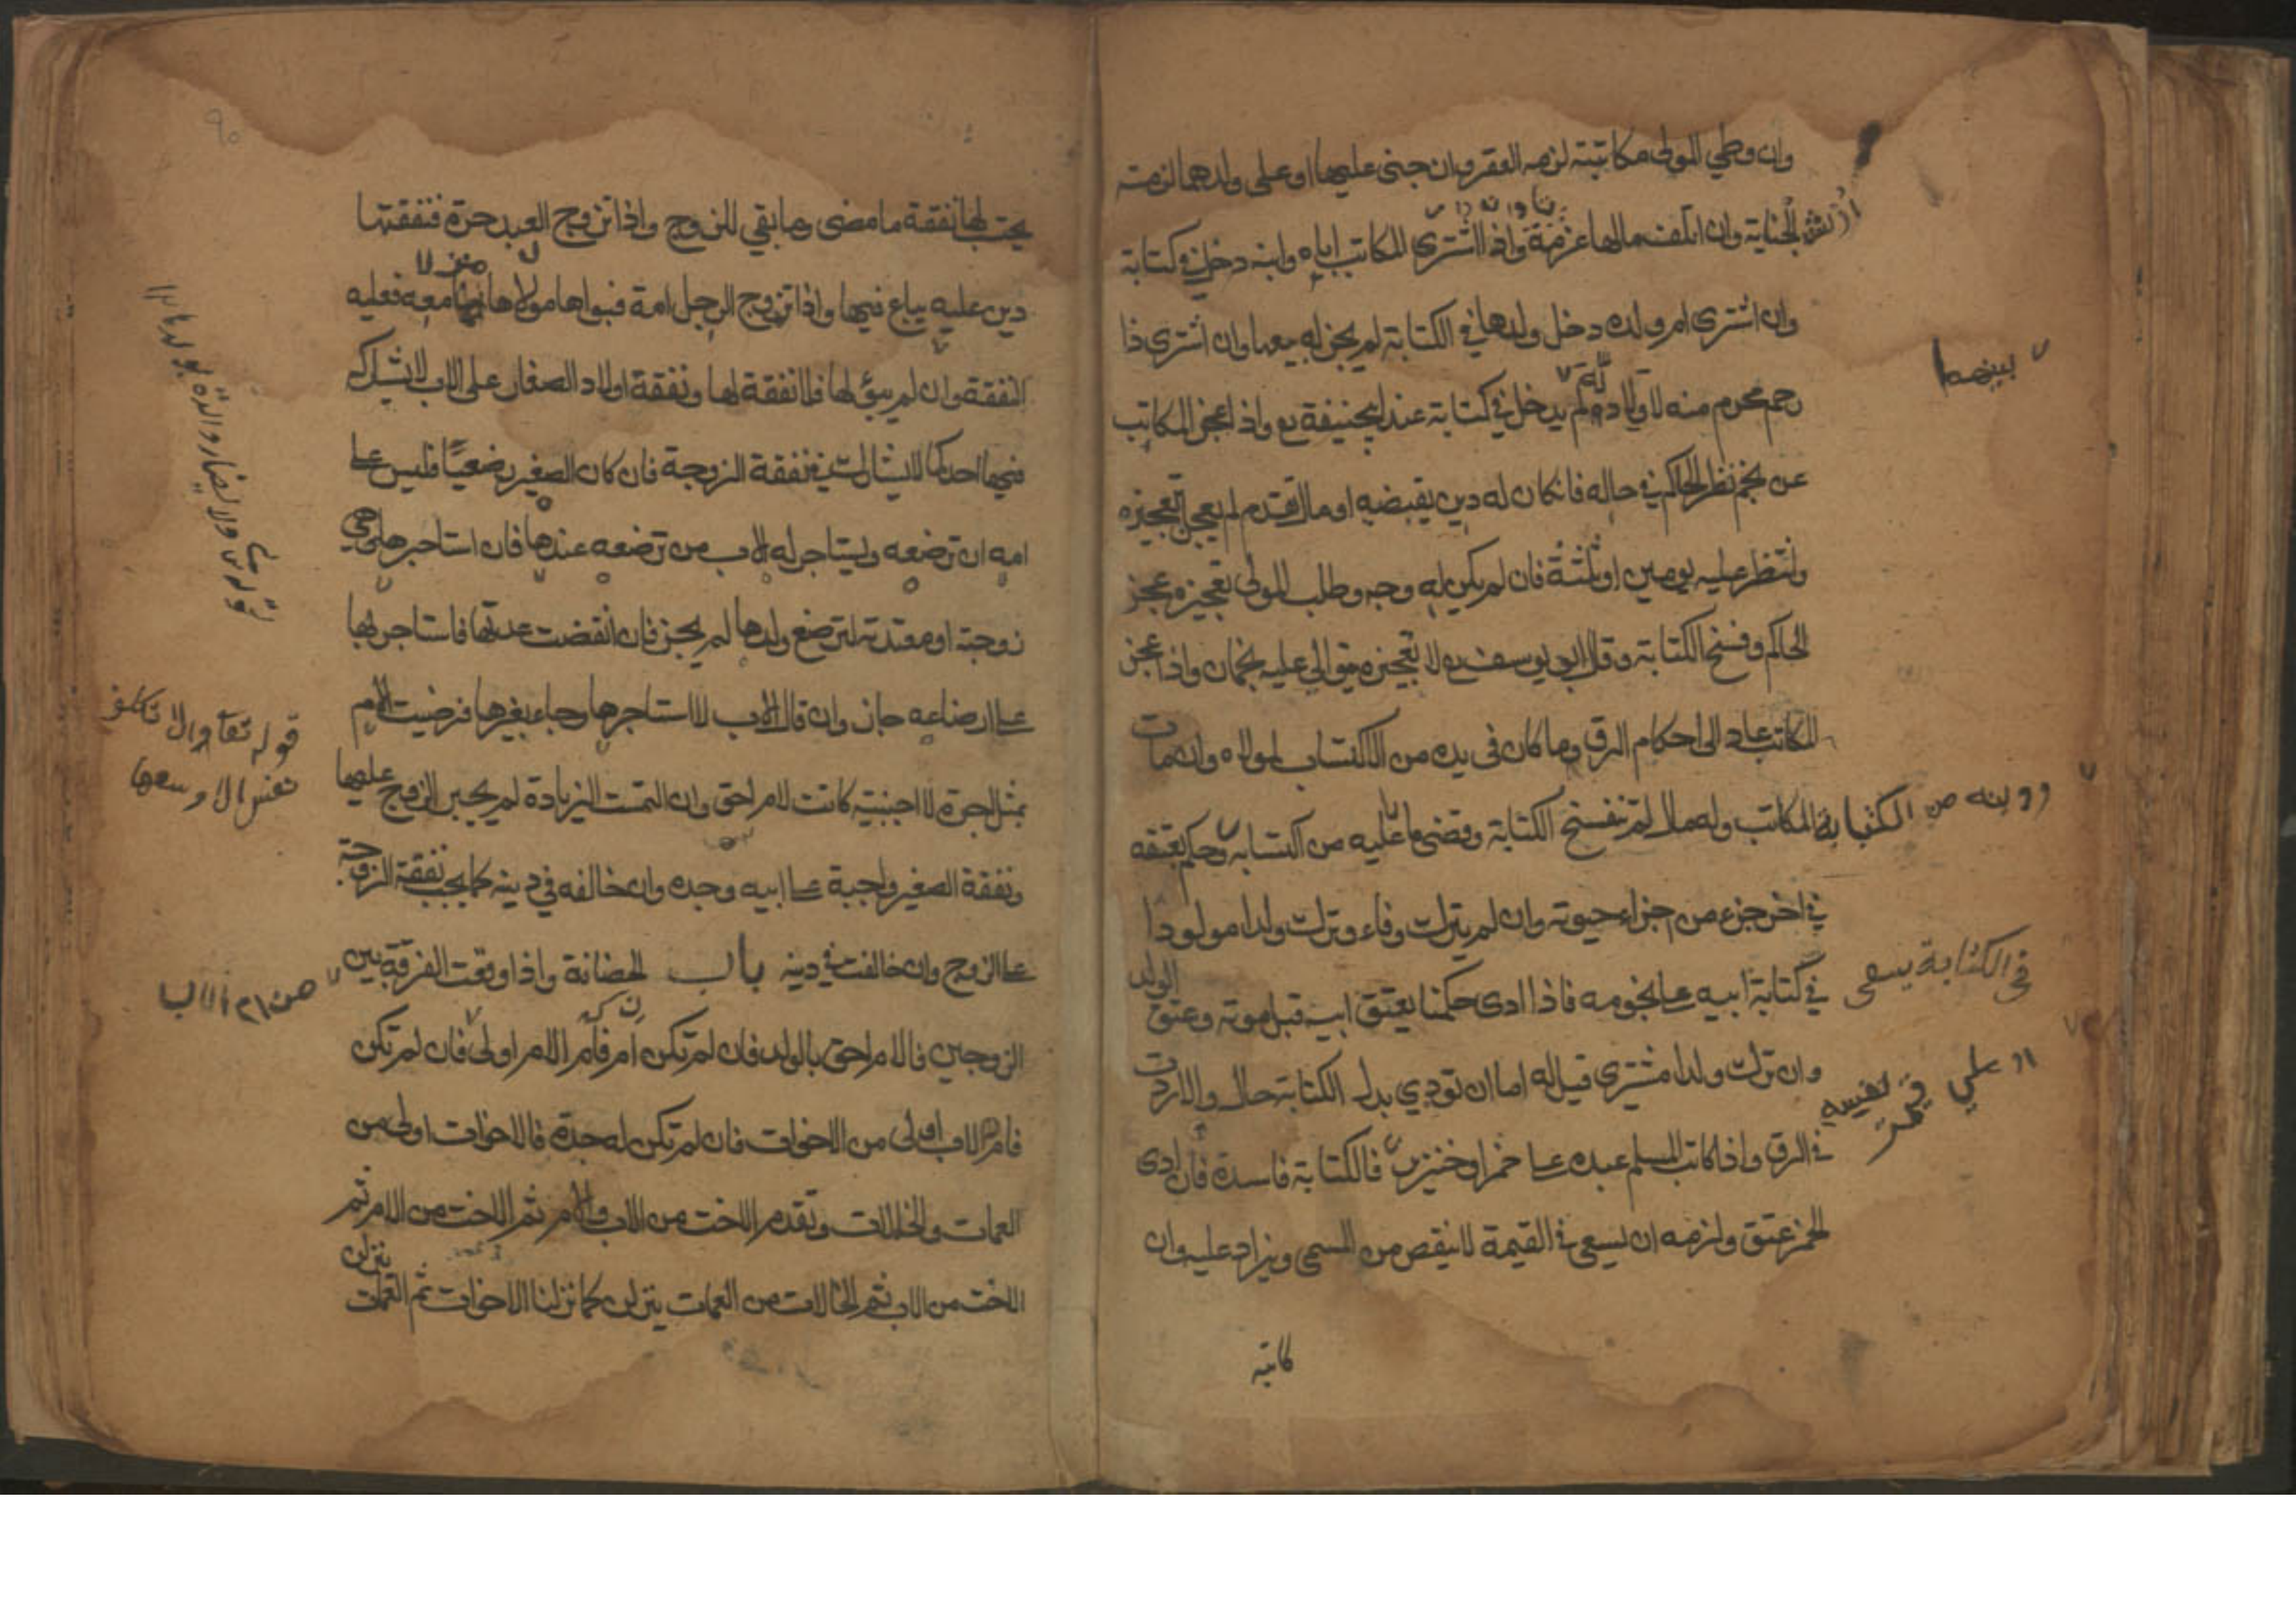 وان وطي المولى مكاتبته لزمه العقر وان جنى عليها او على ولدهما لزمته
الجناية وان اتلف مالها غرمه واذا اشترى المكاتب اباه وابنه دخل في كتابة
وان اشترى ام ولده دخل ولدها في الكتابة لم يجز له بيعها وان اشترى ذا
بينهما
رحم محرم منه لا ولاد له لم يدخل في كتابة عند ابيحنيفة رع واذا عجز المكاتب
عن نجم نظر الحاكم في حاله فانكان له دين يقبضه او مال يقدم لم يعجل تعجيزه
وانتظر عليه يومين او ثلثة فان لم يكن له وجه وطلب المولى تعجيزه عجز
الحاكم وفسخ الكتابة وقال ابي يوسف رع لا تعجيزه يتوالي عليه نجمان واذا عجز
المكاتب عاد الى احكام الرق وما كان في يده من الاكتساب لمولاه وان مات
المكاتب وله مال لم تنفسخ الكتابة وقضى ما عليه من اكتسابه وحكم بعتقه
في اخر جزء من اجزاء حيوته وان لم يترك وفاء وترك ولدا مولودا
في الكتابة يسعى
في كتابة ابيه على نجومه فاذا ادى حكمنا بعتق ابيه قبل موته وعتق الولد
وان ترك ولدا مشتري قيل له اما ان تودي بدل الكتابة حالا والا ردت
في الرق واذا كاتب المسلم عبده على خمر او خنزير فالكتابة فاسدة فان ادى
الخمر عتق ولزمه ان يسعى في القيمة لا ينقص من المسمى ويزاد عليه وان
كاتبه
٩٠
يجب لها نفقة ما مضى وما بقي للزوج واذا تزوج العبد حرة فنفقتها
دين عليه يباع فيها واذا تزوج الرجل امة فبواها مولاها منزلا معه فعليه
النفقة وان لم يبوّ لها فلا نفقة لها ونفقة اولاد الصغار على الاب لا يشاركه
فيها احد كما لا يشارك في نفقة الزوجة فان كان الصغير رضعيًا فليس على
امه ان ترضعه ويستاجر له الاب من ترضعه عندها فان استاجرها وهي
زوجته او معتدته لترضع ولدها لم يجز فان انقضت عدتها فاستاجر بها
على ارضاعه جاز وان قال الاب لا استاجرها وجاء بغيرها فرضيت الام
قوله تعا ولا تكلف
نفس الا وسعها
بمثل اجرة الاجنبية كانت الام احق وان التمست الزيادة لم يجبر الزوج عليها
ونفقة الصغير واجبة على ابيه وجده وان خالفه في دينه كما يجب نفقة الزوجة
على الزوج وان خالفت في دينه باب الحضانة واذا وقعت الفرقة بين
الزوجين فالام احق بالولد فان لم تكن ام فام الام اولى فان لم تكن
فام الاب اولى من الاخوات فان لم تكن له جدة فالاخوات اولى من
العمات والخالات وتقدم الاخت من الاب والام ثم الاخت من الام ثم
الاخت من الاب ثم الخالات من العمات ينزلن كما نزلنا الاخوات ثم العمات ينزلن